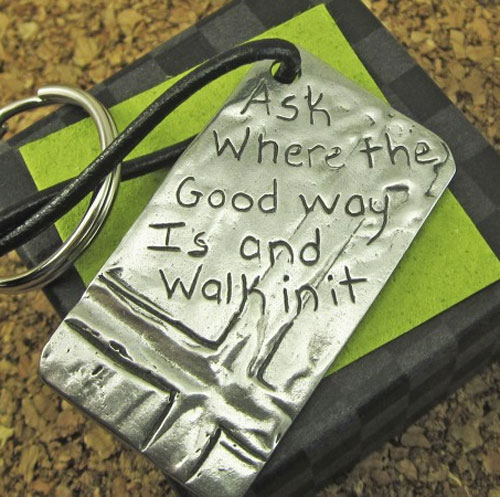 Ask
Where the
Good way
Is and
Walk in it